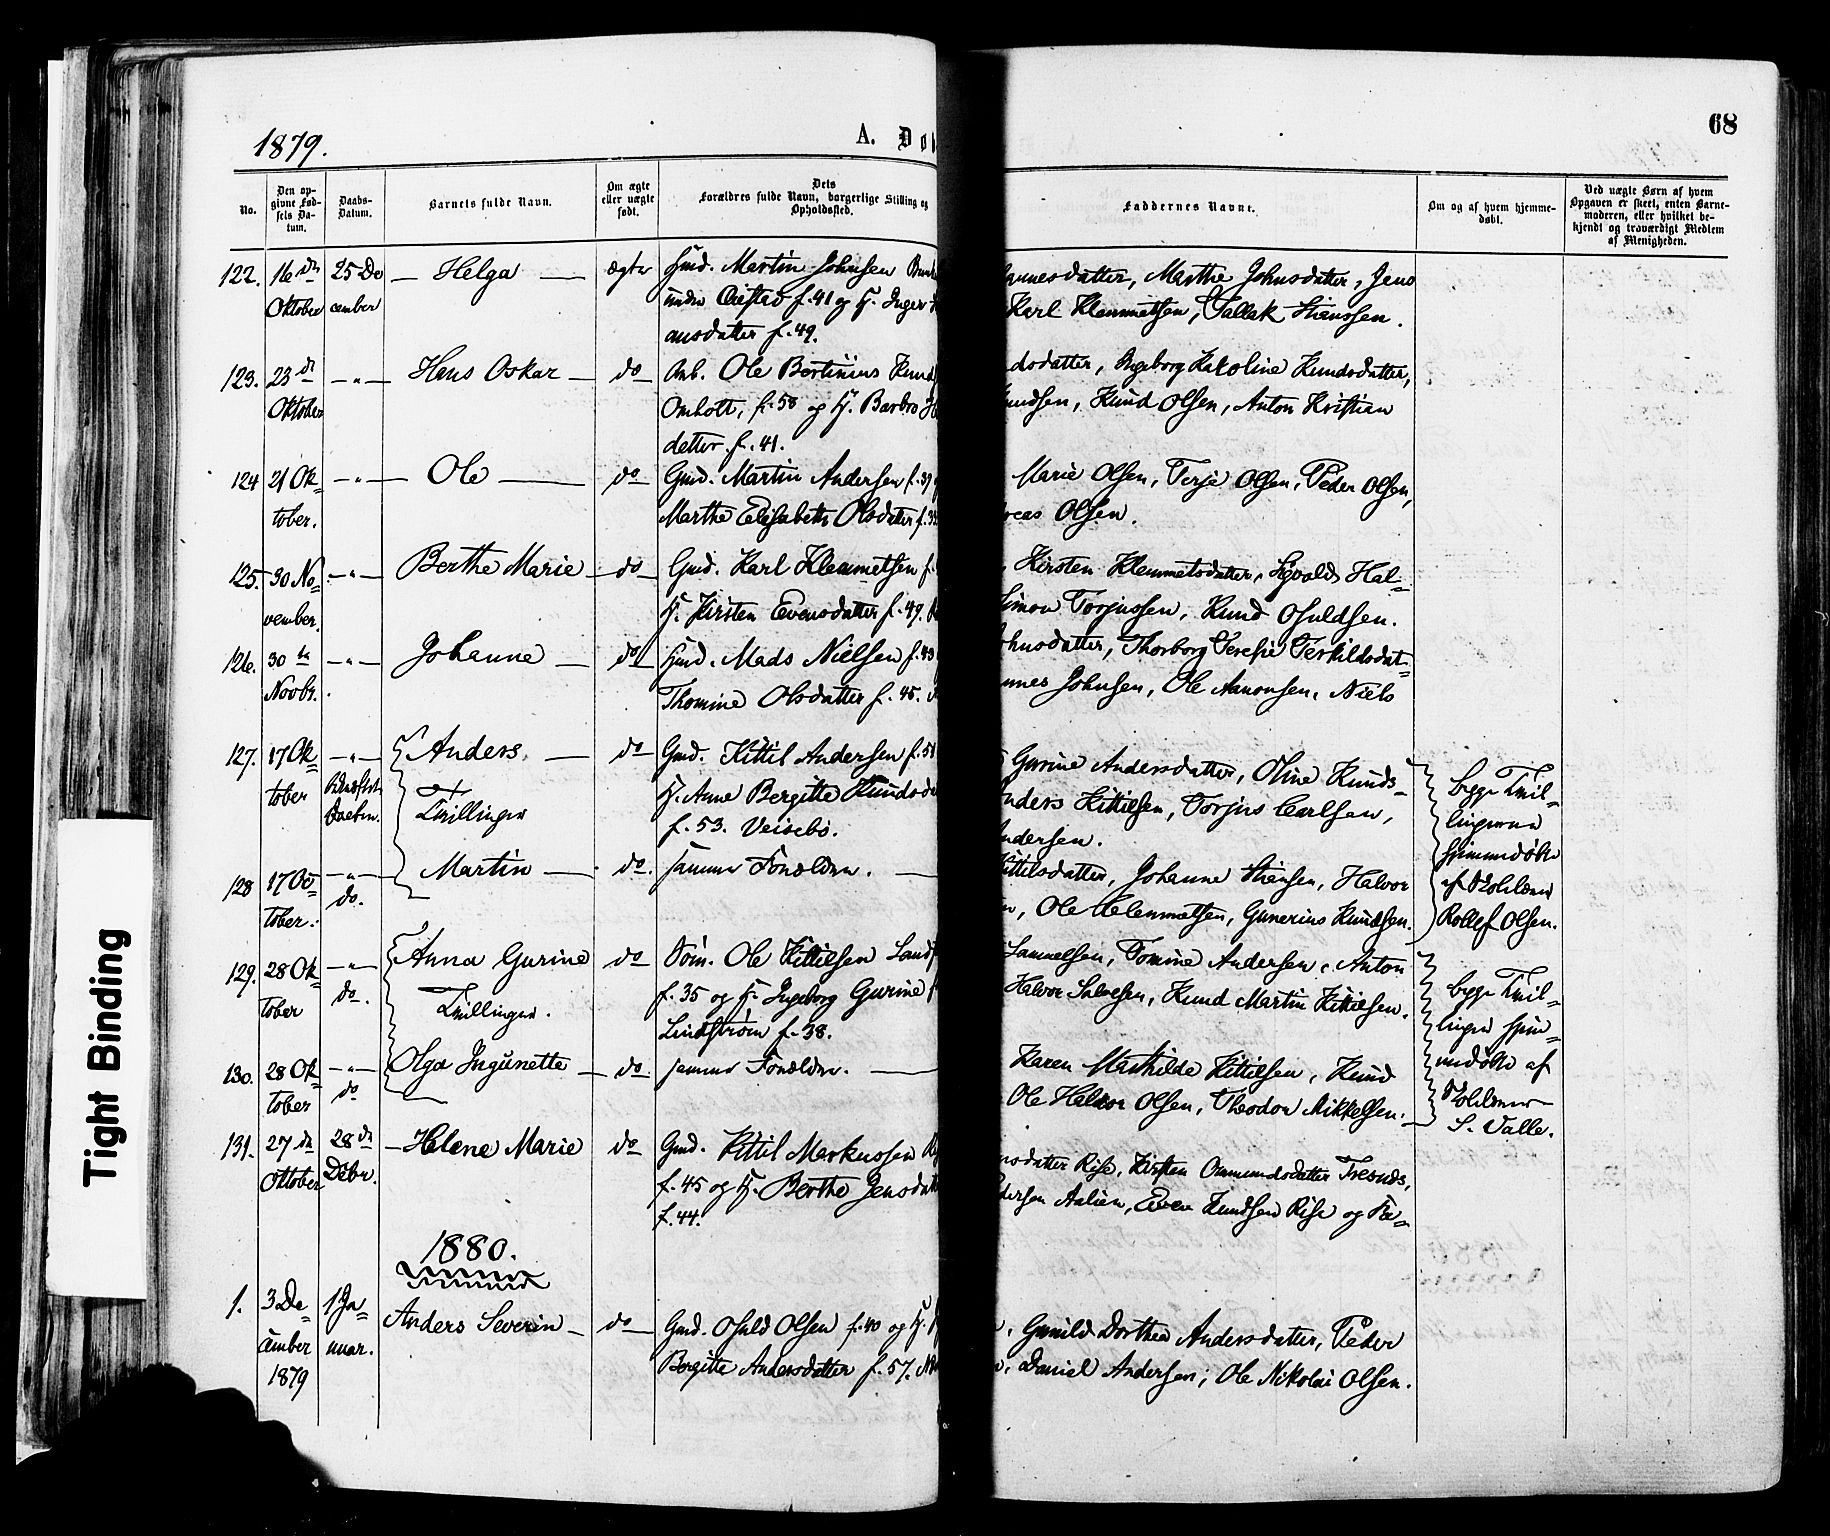 1879.
A. Dob
68
No.
Den op-
givne Fød-
sels Da-
tum.
Daabs-
Datum.
Barnets fulde Navn.
Om ægte
eller uægte
født.
Dets
Forældres fulde Navn, borgerlige Stilling og
Opholdssted.
Faddernes Navne.
Om og af hvem hjemme-
døbt.
Ved uægte Børn af hvem
Opgaven er skeet, enten Barne-
moderen, eller hvilket be-
kjendt og troværdigt Medlem
af Menigheden.
122. 16 de 25 De Helga ægte Gmd. Martin Johnsen
Oktober cember under f. 41 og H. Inger
ansdatter f. 49.
annesdatter, Marthe Johnsdatter, Jens
Karl Klemmetsen, Tallak Hansen.
123. 23 d -"- Hans Oskar do Arb. Ole Bertinius Knud
Oktober Omholt, f. 58 og H. Barbro
datter f. 41.
dsdatter, Ingeborg Karoline Knudsdatter,
Knudsen, Knud Olsen, Anton Kristian
124 21 Ok= -"- Ole do Gmd. Martin Andersen f. 39
tober. Marthe Elisabeth Olsdatter f. 3
Marie Olsen, Terje Olsen, Peder Olsen,
reas Olsen.
125. 30 No -"- Berthe Marie do Gmd. Karl Klemmetsen f.
vember. H. Kirsten Evensdatter f. 49.
, Kirsten Klemmetsdatter, Sigvald Hal=
Simon Torjussen, Knud Osuldsen.
126. 30 te -"- Johanne do Gmd. Mads Nielsen f. 43
Novbr. Thomine Olsdatter f. 45.
ohnsdatter, Thorborg Teresie Terkildsdat=
nnes Johnsen, Ole Aanonsen, Niels
127. 17 Ok -"- Anders do Gmd. Kittil Andersen f. 51
tober H. Anne Bergitte Knudsda
Daaben. Tvillinger f. 53. Veisebo.
Gurine Andersdatter, Oline Knuds=
nders Kittilsen, Torjus Carlsen,
ndersen.
begge Tvil=
lingerne
hjemmedøbte
af Kirkesanger
Rollef Olsen.
128 17 Oc -"- Martin do. samme Forældre.
tober. do.
Kittilsdatter, Johanne Hansen, Halvor
n, Ole Clemmetsen, Gunerius Knudsen.
129. 28 Ok -"- Anna Gurine do Tøm. Ole Kittilsen Sand
tober do. Tvillinger. f. 35 og H. Ingeborg Gurine
Lindstrøm f. 38.
Samuelsen, Tomine Andersen, Anton
Halvor Salvesen, Knud Martin Kittilsen.
begge Tvil=
linger hjem=
medøbte af
S. Valle.
130. 28 Ok -"- Olga Ingunette do. samme Forældre.
tober do
Karen Mathilde Kittilsen, Knud
Ole Halvor Olsen, Theodor Mikkelsen.
131. 27 de 28 de Helene Marie do Gmd. Kittil Markussen
Oktober Debr. f. 45 og H. Berthe Jensdatt
f. 44.
nsdatter Rise, Kirsten Ommundsdatter Tresnes,
Pedersen Aalien, Even Knudsen Rise og Pe=
1880.
1. 3 De 1 Ja= Anders Severin do Gmd. Osuld Olsen f. 40 og H.
cember nuar. Bergitte Andersdatter f. 57.
1879
Gunild Dorthea Andersdatter, Peder
n, Daniel Andersen, Ole Nikolai Olsen.
Tight Binding